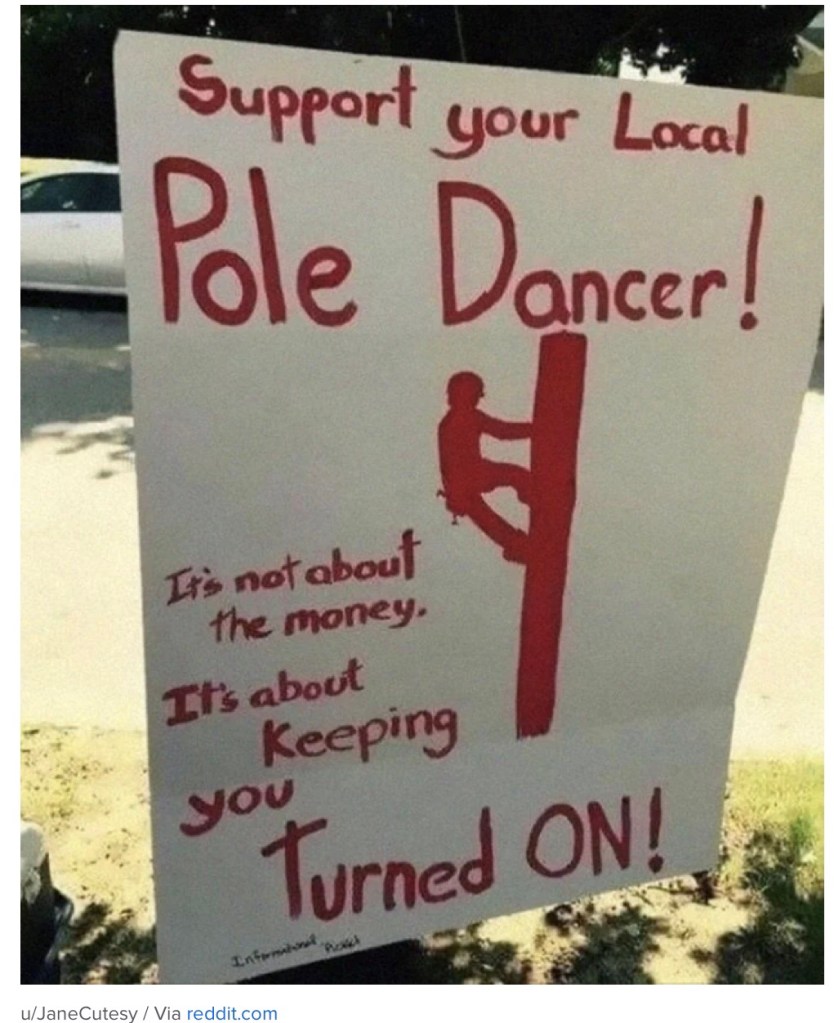 Support your Local
Pole Dancer!
It's not about
the money.
It's about
Keeping
you
Turned ON!
Informational Picket
u/JaneCutesy / Via reddit.com